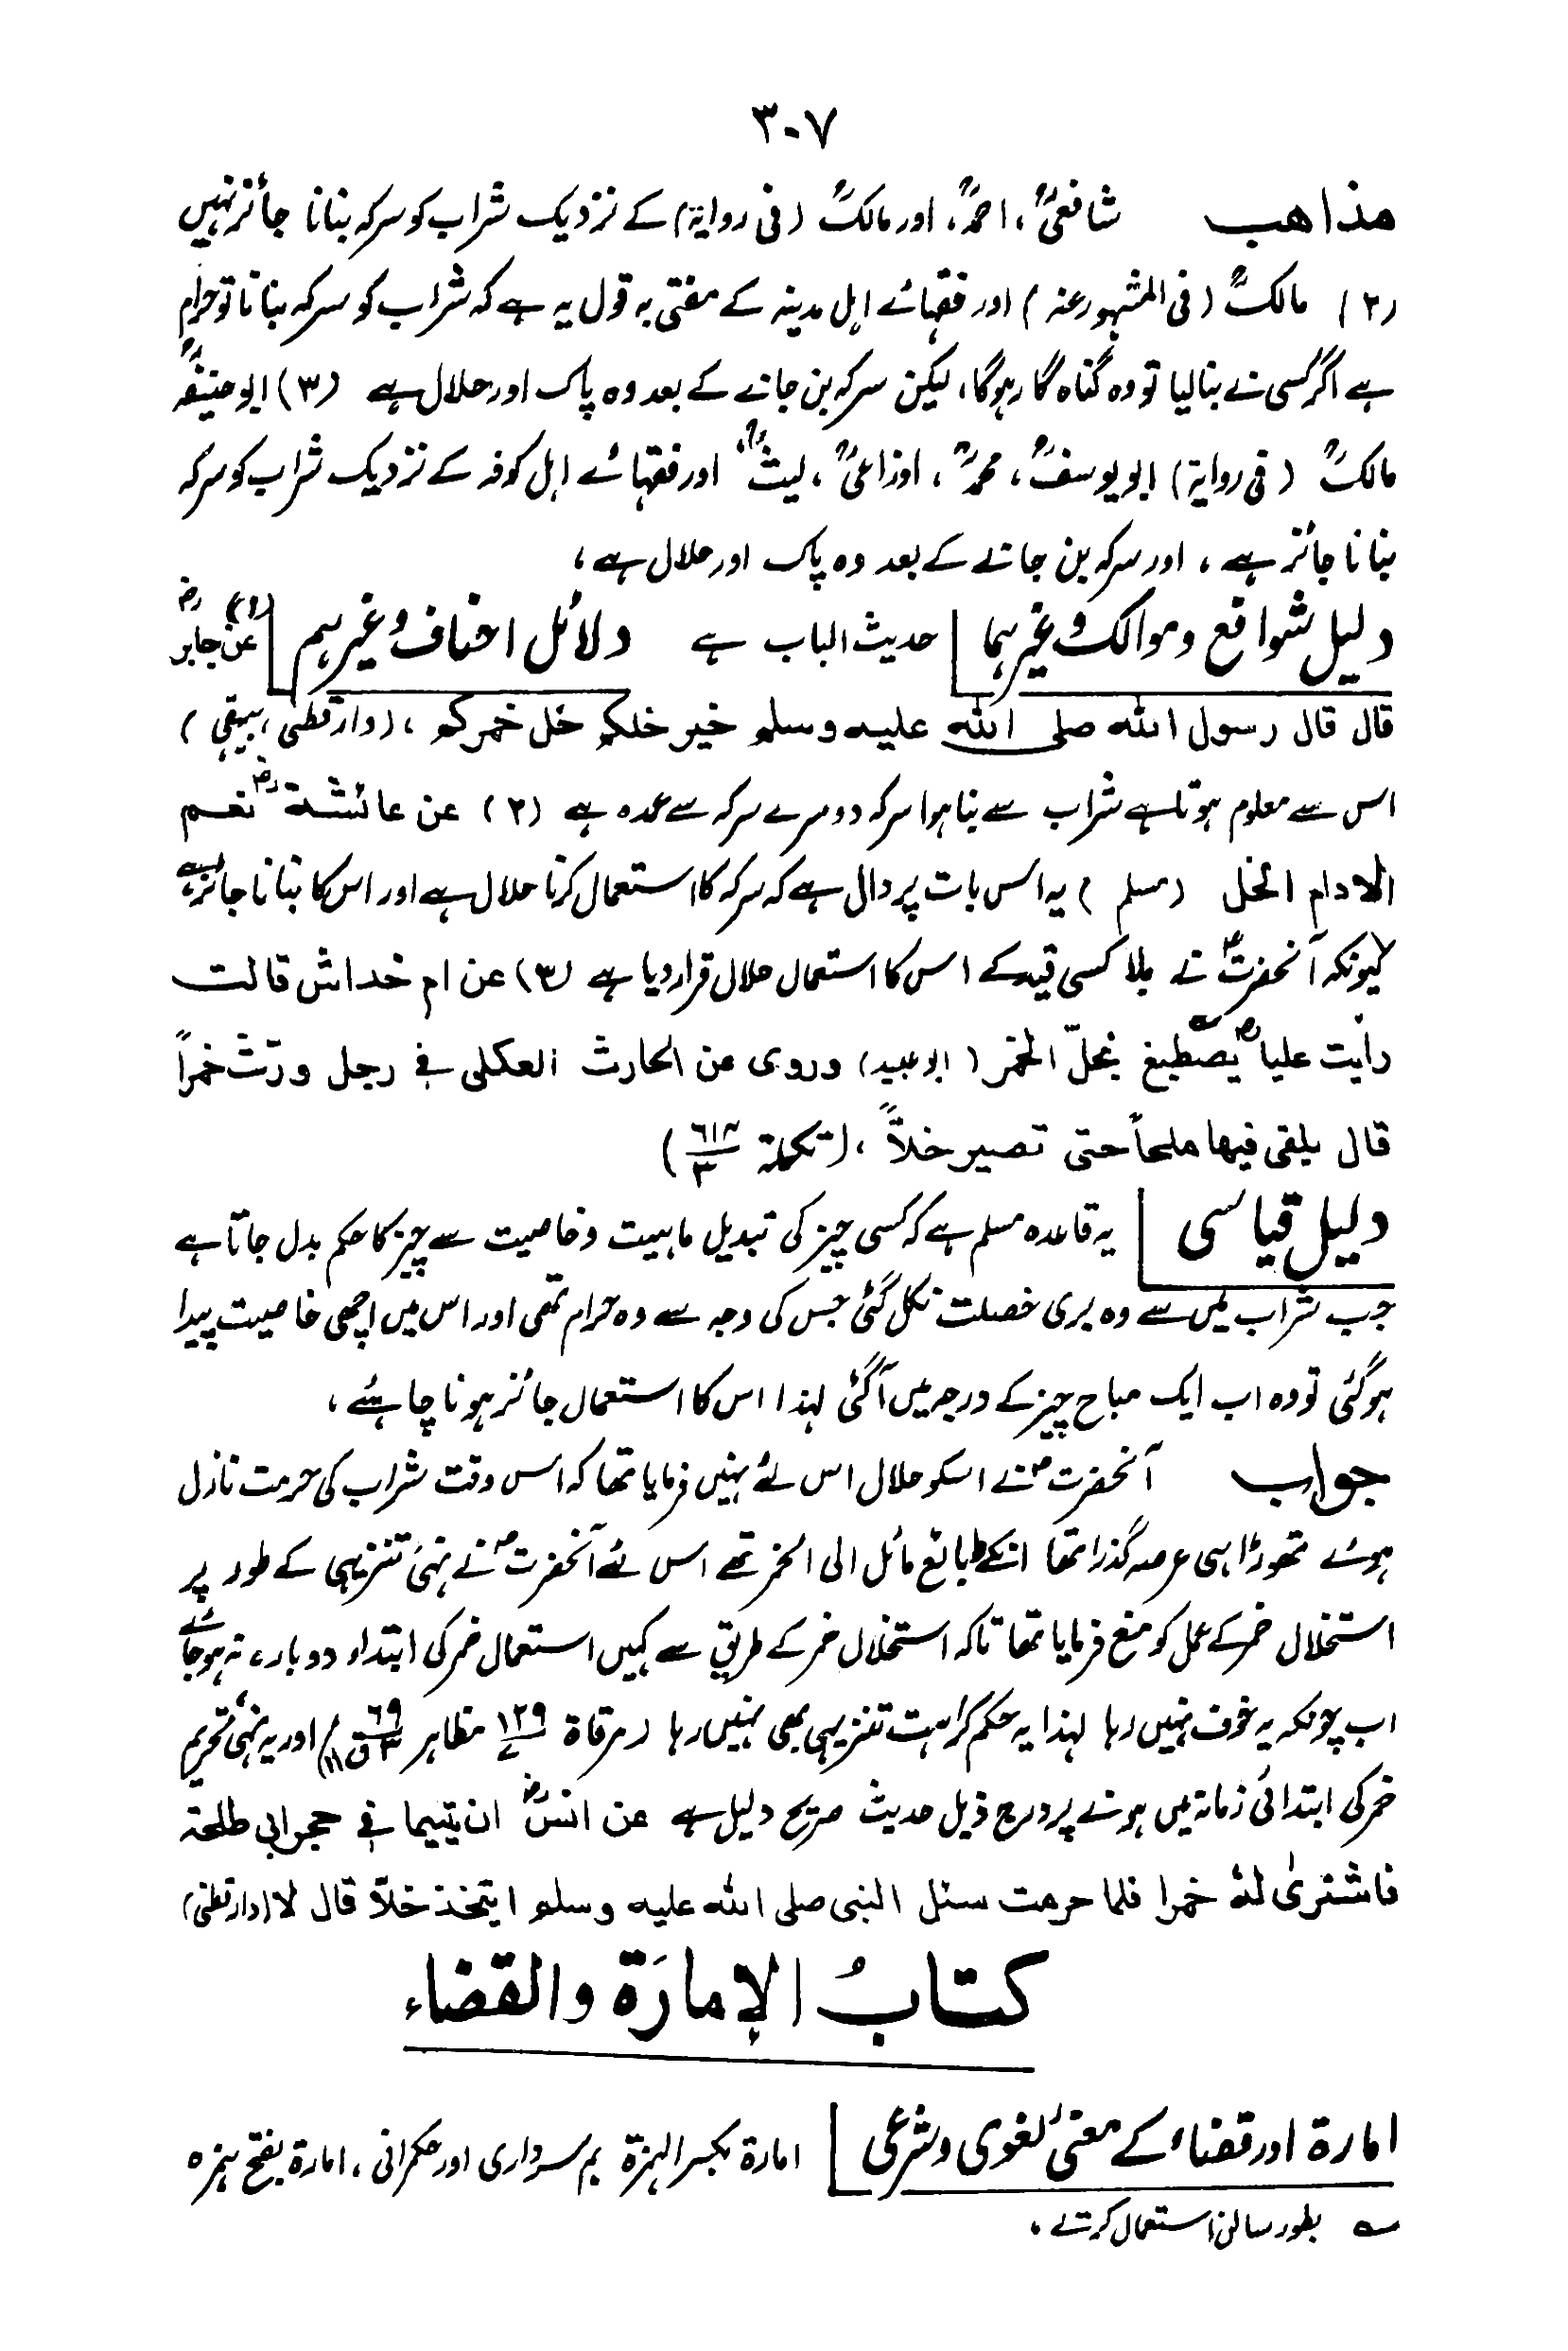 ۳۰۷
مذاهب شافعیؒ، احمدؒ، اور مالکؒ (فی روایۃ) کے نزدیک شراب کو سرکہ بنانا جائز نہیں
(۲) مالکؒ (فی المشہور عنہ) اور فقہائے اہل مدینہ کے مفتی بہ قول یہ ہے کہ شراب کو سرکہ بنانا تو حرام
ہے اگر کسی نے بنا لیا تو وہ گناہ گار ہوگا، لیکن سرکہ بن جانے کے بعد وہ پاک اور حلال ہے (۳) ابو حنیفہؒ
مالکؒ (فی روایۃ) ابو یوسفؒ، محمدؒ، اوزاعیؒ، لیثؒ اور فقہائے اہل کوفہ کے نزدیک شراب کو سرکہ
بنانا جائز ہے، اور سرکہ بن جانے کے بعد وہ پاک اور حلال ہے،
دلیل شوافع وموالک وغیرہما حدیث الباب ہے دلائل احناف وغیرہم (۱) عن جابرؓ
قال قال رسول اللہ صلی اللہ علیہ وسلم خیر خلکم خل خمرکم، (دارقطنی، بیہقی)
اس سے معلوم ہوتا ہے شراب سے بنا ہوا سرکہ دوسرے سرکہ سے عمدہ ہے (۲) عن عائشۃؓ نعم
الادام الخل (مسلم) یہ اس بات پر دال ہے کہ سرکہ کا استعمال کرنا حلال ہے اور اس کا بنانا جائز ہے
کیونکہ آنحضرتؐ نے بلا کسی قید کے اس کا استعمال حلال قرار دیا ہے (۳) عن ام خداش قالت
رأیت علیاؓ یصطبغ بخلّ الخمر (ابو عبید) وروی عن الحارث العکلی فی رجل ورّث خمراً
قال یلقی فیہا ملحاً حتی تصیر خلاًّ، (تکملۃ ۶۱۲/۳)
دلیل قیاسی یہ قاعدہ مسلم ہے کہ کسی چیز کی تبدیل ماہیت وخاصیت سے چیز کا حکم بدل جاتا ہے
جب شراب میں سے وہ بری خصلت نکل گئی جس کی وجہ سے وہ حرام تھی اور اس میں اچھی خاصیت پیدا
ہوگئی تو وہ اب ایک مباح چیز کے درجہ میں آگئی لہذا اس کا استعمال جائز ہونا چاہئے،
جواب آنحضرتؐ نے اسکو حلال اس لئے نہیں فرمایا تھا کہ اس وقت شراب کی حرمت نازل
ہوئے تھوڑا ہی عرصہ گذرا تھا انکے طبائع مائل الی الخمر تھے اس لئے آنحضرتؐ نے نہیٔ تنزیہی کے طور پر
استخلال خمر کے عمل کو منع فرمایا تھا تاکہ استخلال خمر کے طریق سے کہیں استعمال خمر کی ابتداء دوبارہ نہ ہو جائے
اب چونکہ یہ خوف نہیں رہا لہذا یہ حکم کراہت تنزیہی بھی نہیں رہا (مرقاۃ ۱۲۹/۷ مظاہر) اور یہ نہیٔ تحریم
خمر کی ابتدائی زمانہ میں ہونے پر درج ذیل حدیث صریح دلیل ہے عن انسؓ ان یتیما فی حجر ابی طلحۃ
فاشتریٰ لہٗ خمرا فلما حرمت سئل النبی صلی اللہ علیہ وسلم ایتخذ خلاّ قال لا (دارقطنی)
کتابُ الإمارَة والقضاء
امارۃ اور قضاء کے معنیٔ لغوی وشرعی امارۃ بکسر الہمزۃ بم سرداری اور حکمرانی، امارۃ بفتح ہمزہ
؎ بطور سالن استعمال کرتے۔